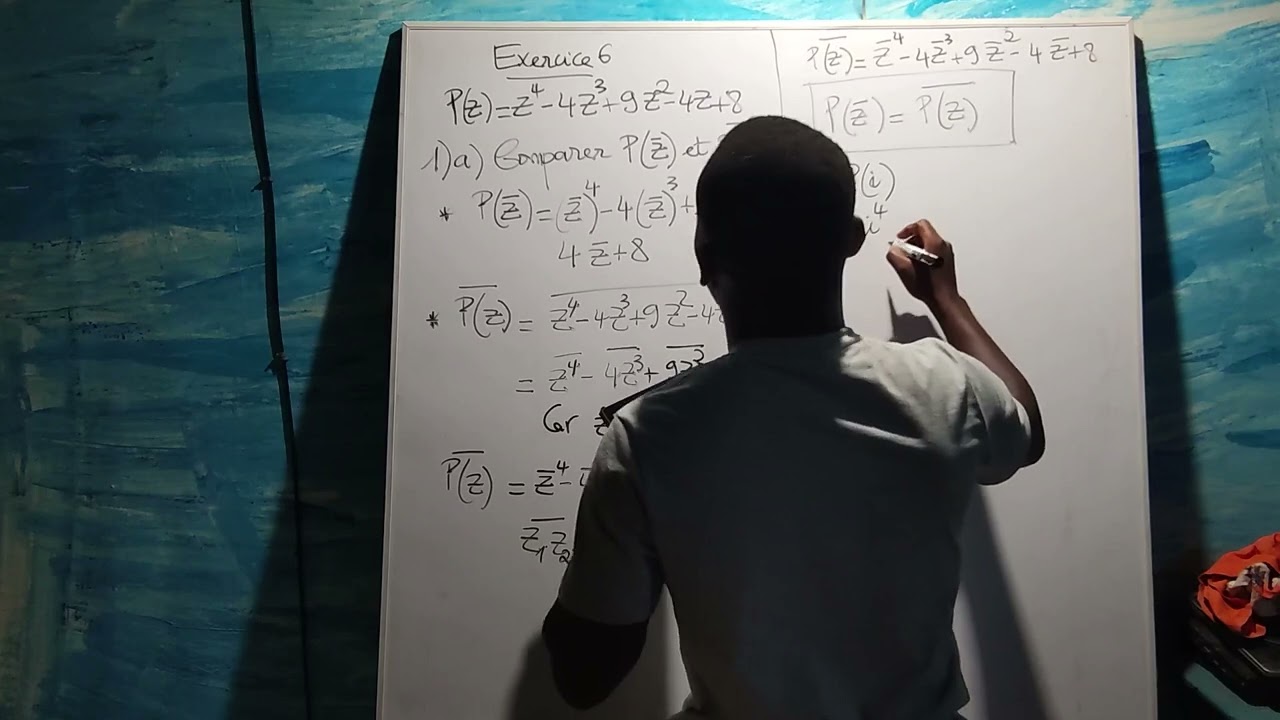 Exercice 6
P(z)=z⁴-4z³+9z²-4z+8
1)a) Comparer P(z̅) et
* P(z̅)=(z̅)⁴-4(z̅)³+
4z̅+8
* \overline{P(z)} = \overline{z⁴-4z³+9z²-4z
= \overline{z⁴} - \overline{4z³} + \overline{9z³}
Car z
\overline{P(z)} = z̅⁴-
\overline{z₁z₂}
\overline{P(z)} = z̅⁴-4z̅³+9z̅²-4z̅+8
P(z̅) = \overline{P(z)}
P(i)
i⁴